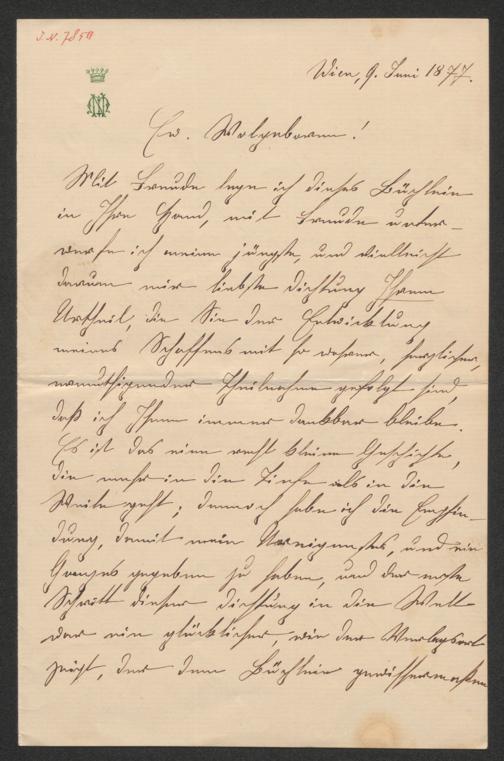 J.N. 7850
Wien, 9. Juni 1877.
Ew. Wolgeboren!
Mit Freude lege ich dieses Büchlein
in Ihre Hand, mit Freude unter-
werfe ich meine jüngste, und vielleicht
darum mir liebste Dichtung Ihrem
Urtheil, die Sie der Entwicklung
meines Schaffens mit so wahrer, herzlicher,
ermuthigender Theilnahme gefolgt sind,
daß ich Ihnen immer dankbar bleibe.
Es ist das eine recht kleine Geschichte,
die mehr in die Tiefe als in die
Weite geht; dennoch habe ich die Empfin-
dung, damit mein Ureigenstes, und ein
Ganzes gegeben zu haben, und der erste
Schritt dieser Dichtung in die Welt
war ein glücklicher, wie der Verlagsort
zeigt, der dem Büchlein gewissermaßen